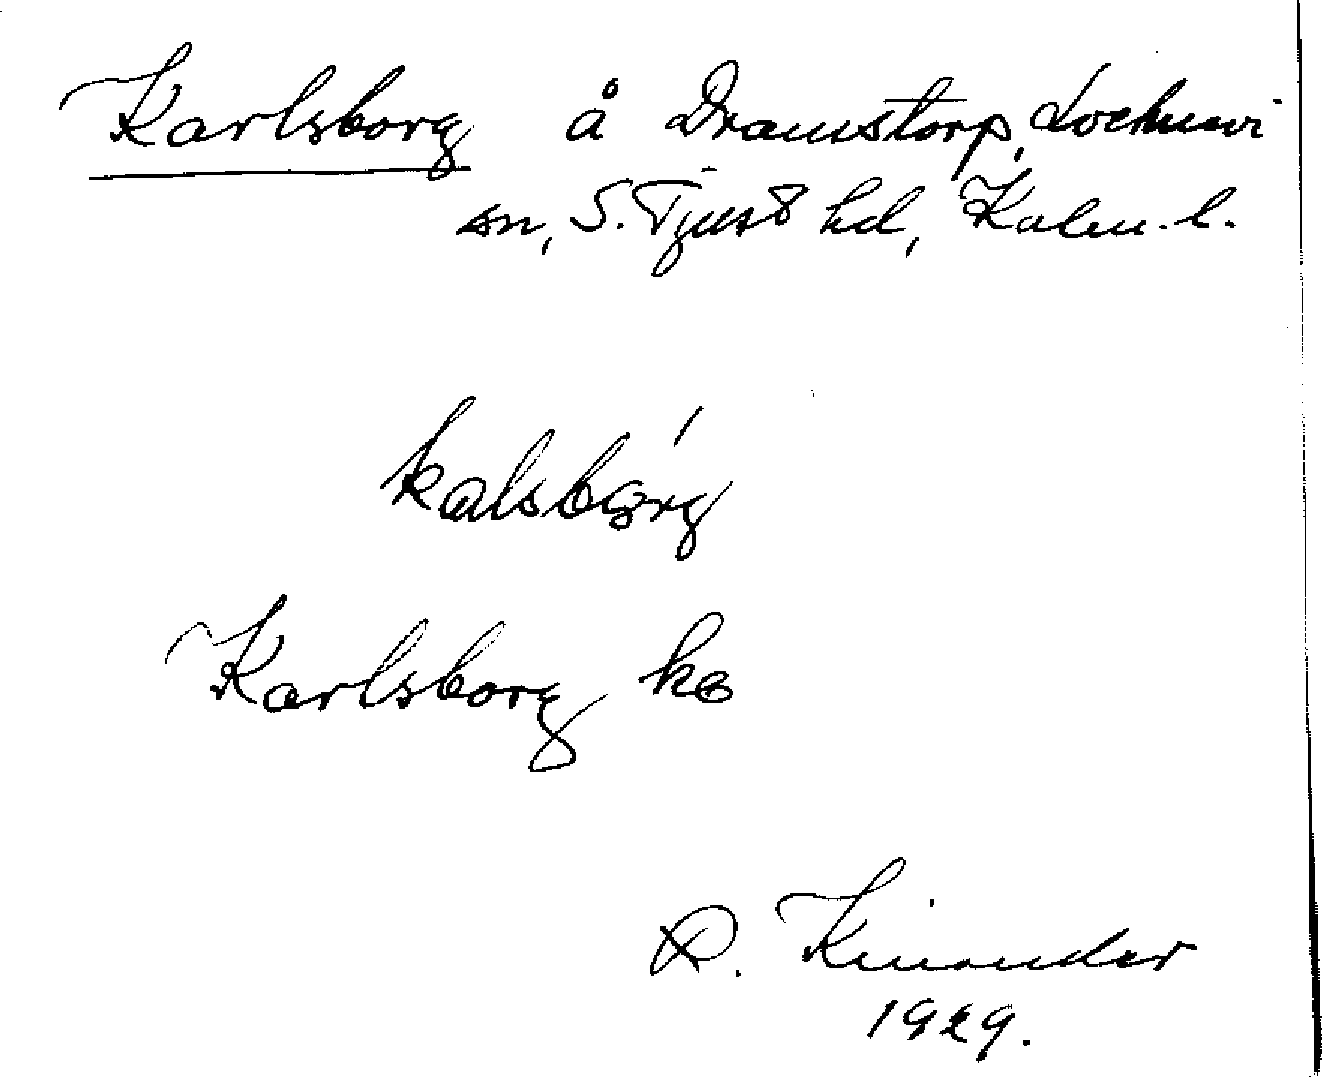 Karlsborg å Dramstorp, Locknevi
sn, S. Tjust hd, Kalm. l.
kalsbórg
Karlsborg ka
R. Kinander
1929.